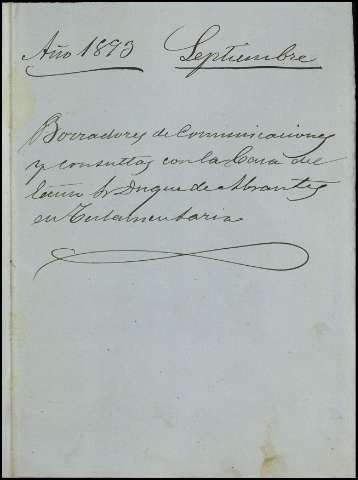 Año 1893 Septiembre
Borradores de Comunicaciones
y consultas con la Casa del
Sr Duque de Abrantes
en Testamentaria